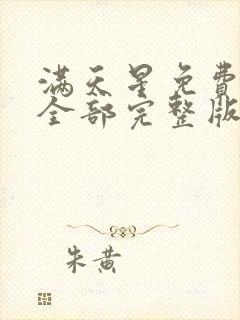 满天星免费
全部完整版
朱黄